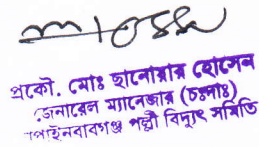 প্রকৌ. মোঃ ছানোয়ার হোসেন
জেনারেল ম্যানেজার (চঃদাঃ)
পাইনবাবগঞ্জ পল্লী বিদ্যুৎ সমিতি